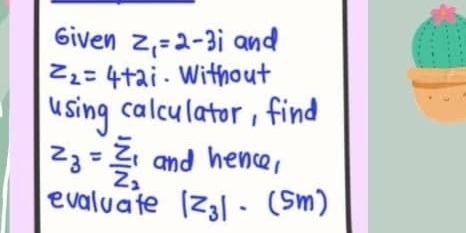 Given z₁ = 2-3i and
z₂ = 4+2i. Without
using calculator, find
z₃ = z̄₁/z₂ and hence,
evaluate |z₃|. (5m)